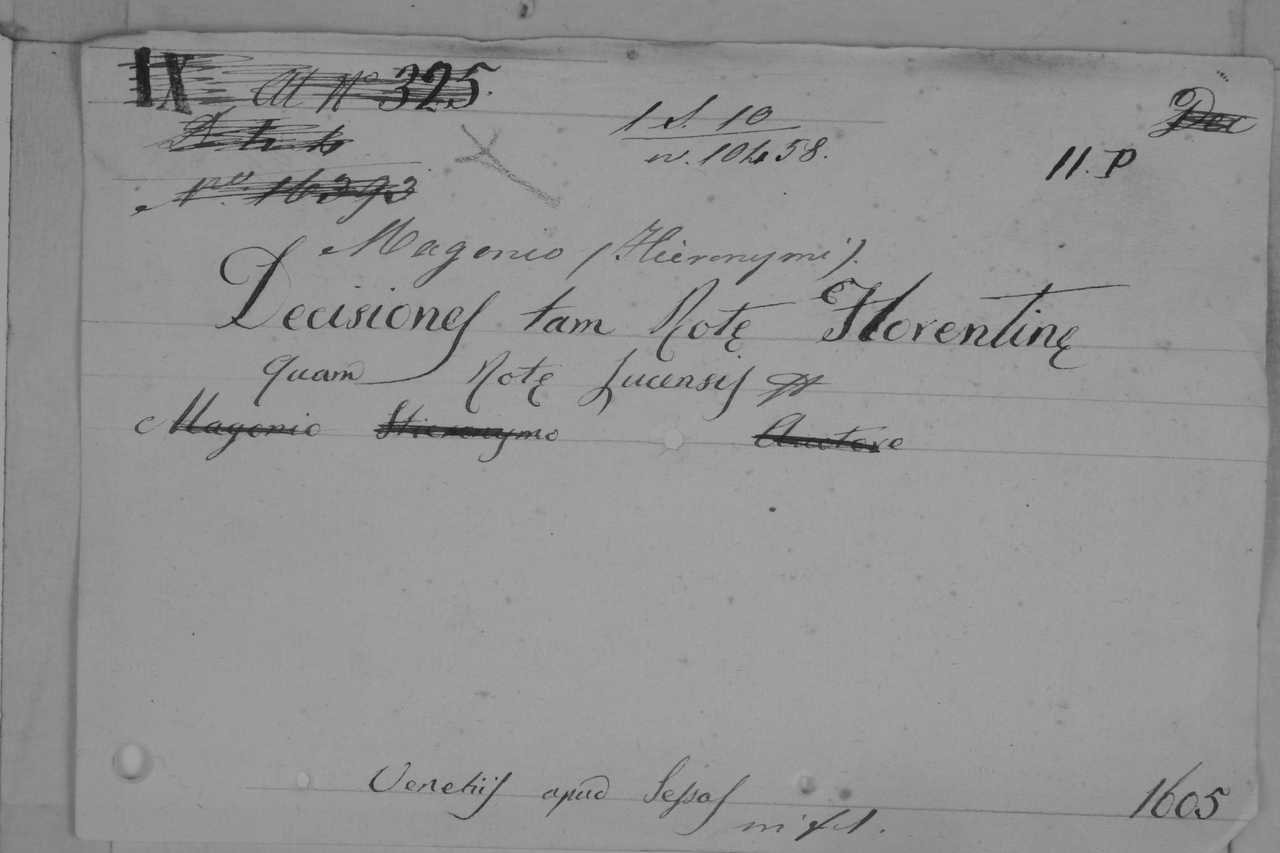 IX Att Nº 325.
Dec
1 S. 10
n. 10458.
11. P
Nro 16393
Magonio (Hieronymi).
Decisiones tam Rotę Florentinę
quam Rotę Lucensis
Magonio Hieronymo Auctore
Venetiis apud Sessas
in fol.
1605